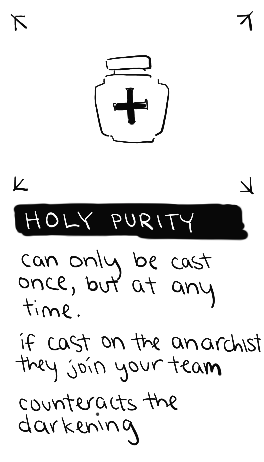 HOLY PURITY
can only be cast
once, but at any
time.
if cast on the anarchist
they join your team
counteracts the
darkening